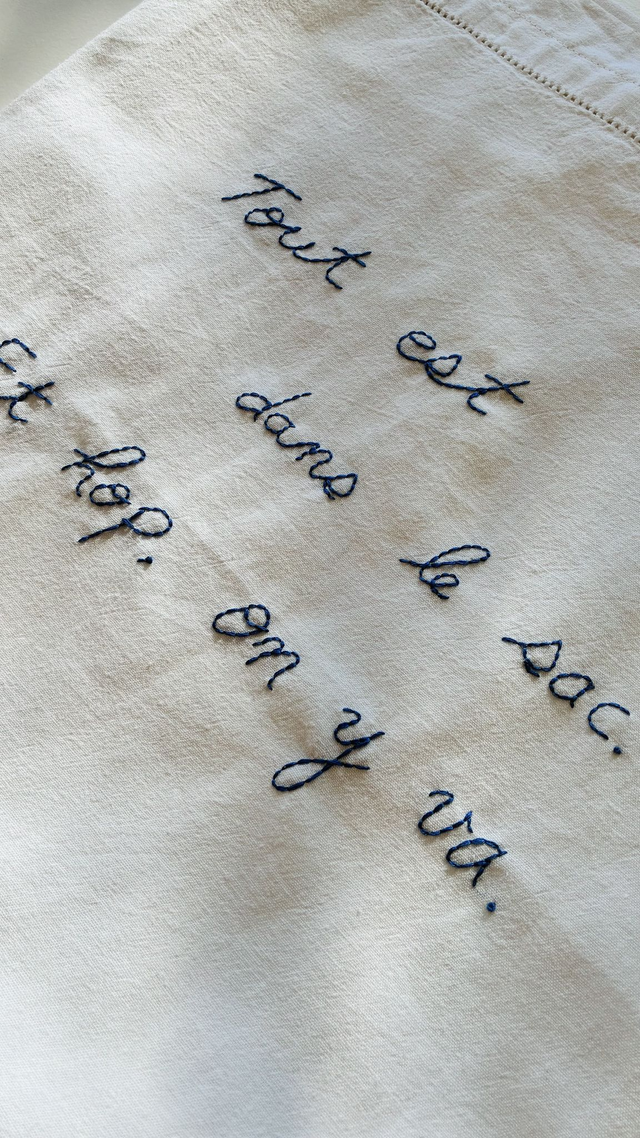 Tout est
dans le sac.
Et hop. on y va.